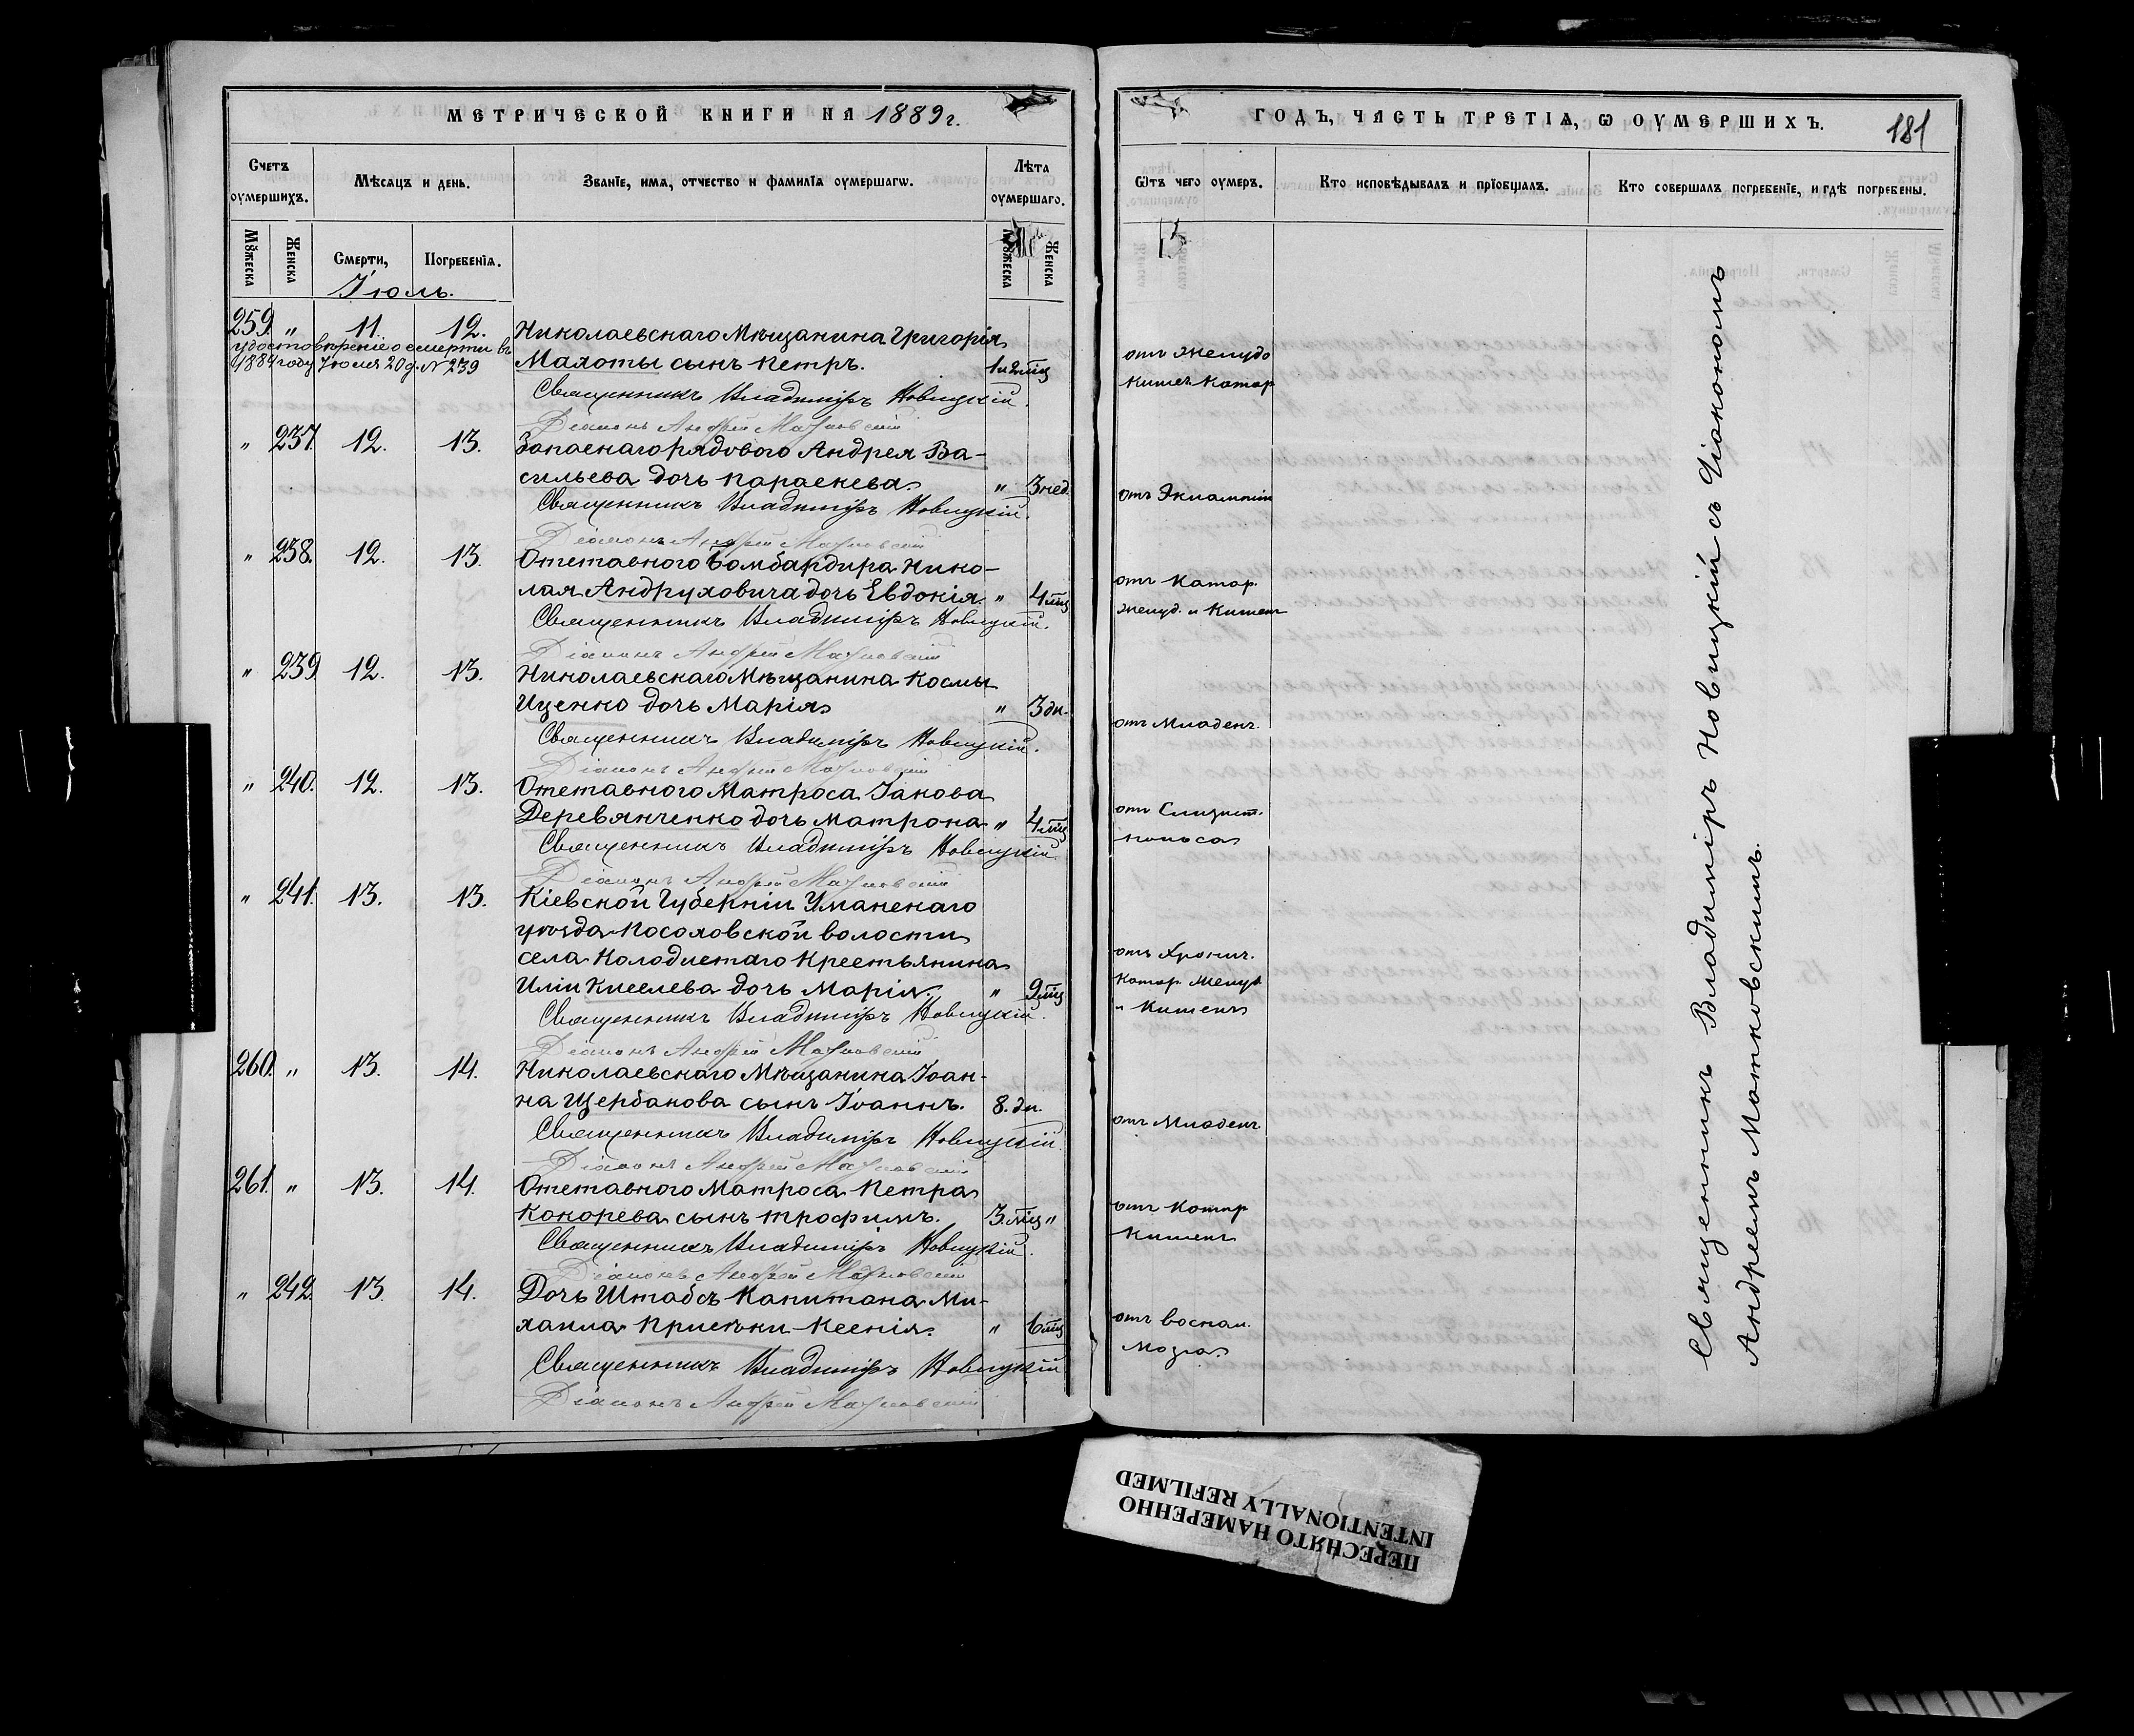 МЕТРИЧЕСКОЙ КНИГИ НА 1889 г.
Счетъ оумершихъ.
Мѣсяцъ и день.
Званїе, имя, отчество и фамилїя оумершагѡ.
Лѣта оумершаго.
Мꙋжеска
Женска
Смерти,
Погребенїя.
Мꙋжеска
Женска
Іюль.
259. " 11. 12. Николаевскаго Мѣщанина Григорія
удостовѣреніе о смерти въ
1889 году Іюля 20 д. № 239
Малоты сынъ Петръ. 1 и 2 мѣс
Священникъ Владиміръ Новицкій.
Діаконъ Андрей Матковскій
" 237. 12. 13. Запаснаго рядового Андрея Ва-
сильева дочь Параскева. " 3 нед.
Священникъ Владиміръ Новицкій.
Діаконъ Андрей Матковскій
" 238. 12. 13. Отставного Бомбардира Нико-
лая Андруховича дочь Евдокія. " 4 мѣс
Священникъ Владиміръ Новицкій.
Діаконъ Андрей Матковскій
" 239 12. 13. Николаевскаго Мѣщанина Космы
Иценко дочь Марія " 3 дн.
Священникъ Владиміръ Новицкій.
Діаконъ Андрей Матковскій
" 240. 12. 13. Отставного Матроса Іакова
Деревянченко дочь Матрона " 4 мѣс
Священникъ Владиміръ Новицкій.
Діаконъ Андрей Матковскій
" 241. 13. 13. Кіевской Губерніи Уманскаго
уѣзда Косоловской волости
села Колодистаго Крестьянина
Иліи Киселева дочь Марія. " 9 мѣс
Священникъ Владиміръ Новицкій.
Діаконъ Андрей Матковскій
260. " 13. 14. Николаевскаго Мѣщанина Іоан-
на Щербакова сынъ Іоаннъ. 8. дн.
Священникъ Владиміръ Новицкій
Діаконъ Андрей Матковскій
261. " 13. 14. Отставного Матроса Петра
Кокорева сынъ Трофимъ. 3. мѣс "
Священникъ Владиміръ Новицкій.
Діаконъ Андрей Матковскій
" 242. 13. 14. Дочь Штабсъ Капитана Ми-
хаила Присѣки Ксенія. " 6 мѣс
Священникъ Владиміръ Новицкій
Діаконъ Андрей Матковскій
ГОДЪ, ЧАСТЬ ТРЕТІЯ, Ѡ ОУМЕРШИХЪ.
181
Ѿтъ чего оумеръ.
Кто исповѣдывалъ и прїобщалъ.
Кто совершалъ погребенїе, и гдѣ погребены.
отъ Желудо
кишеч. Катар
отъ Эклампсіи
отъ Катар.
желуд. и Кишекъ
отъ Младенч.
отъ Слизист.
поноса
отъ Хронич.
Катар. Желуд
и Кишекъ
отъ Младенч
отъ Катар
Кишекъ
отъ воспал.
Мозга.
Священникъ Владиміръ Новицкій съ Діакономъ
Андреемъ Матковскимъ.
ПЕРЕСНЯТО НАМЕРЕННО
INTENTIONALLY REFILMED